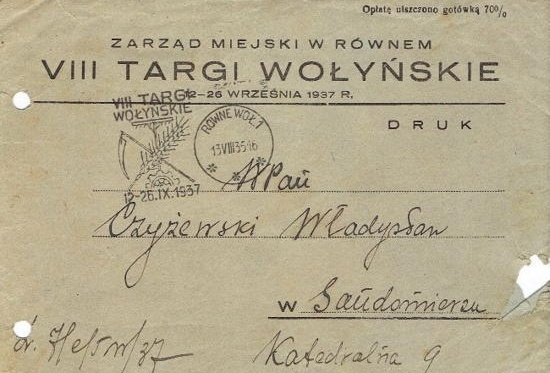 Opłatę uiszczono gotówką 70%
ZARZĄD MIEJSKI W RÓWNEM
VIII TARGI WOŁYŃSKIE
12–26 WRZEŚNIA 1937 R.
VIII TARGI
WOŁYŃSKIE
12-26.IX.1937
RÓWNE WOŁ. 1
DRUK
WPan
Czyżewski Władysław
w Sandomierzu
Katedralna 9